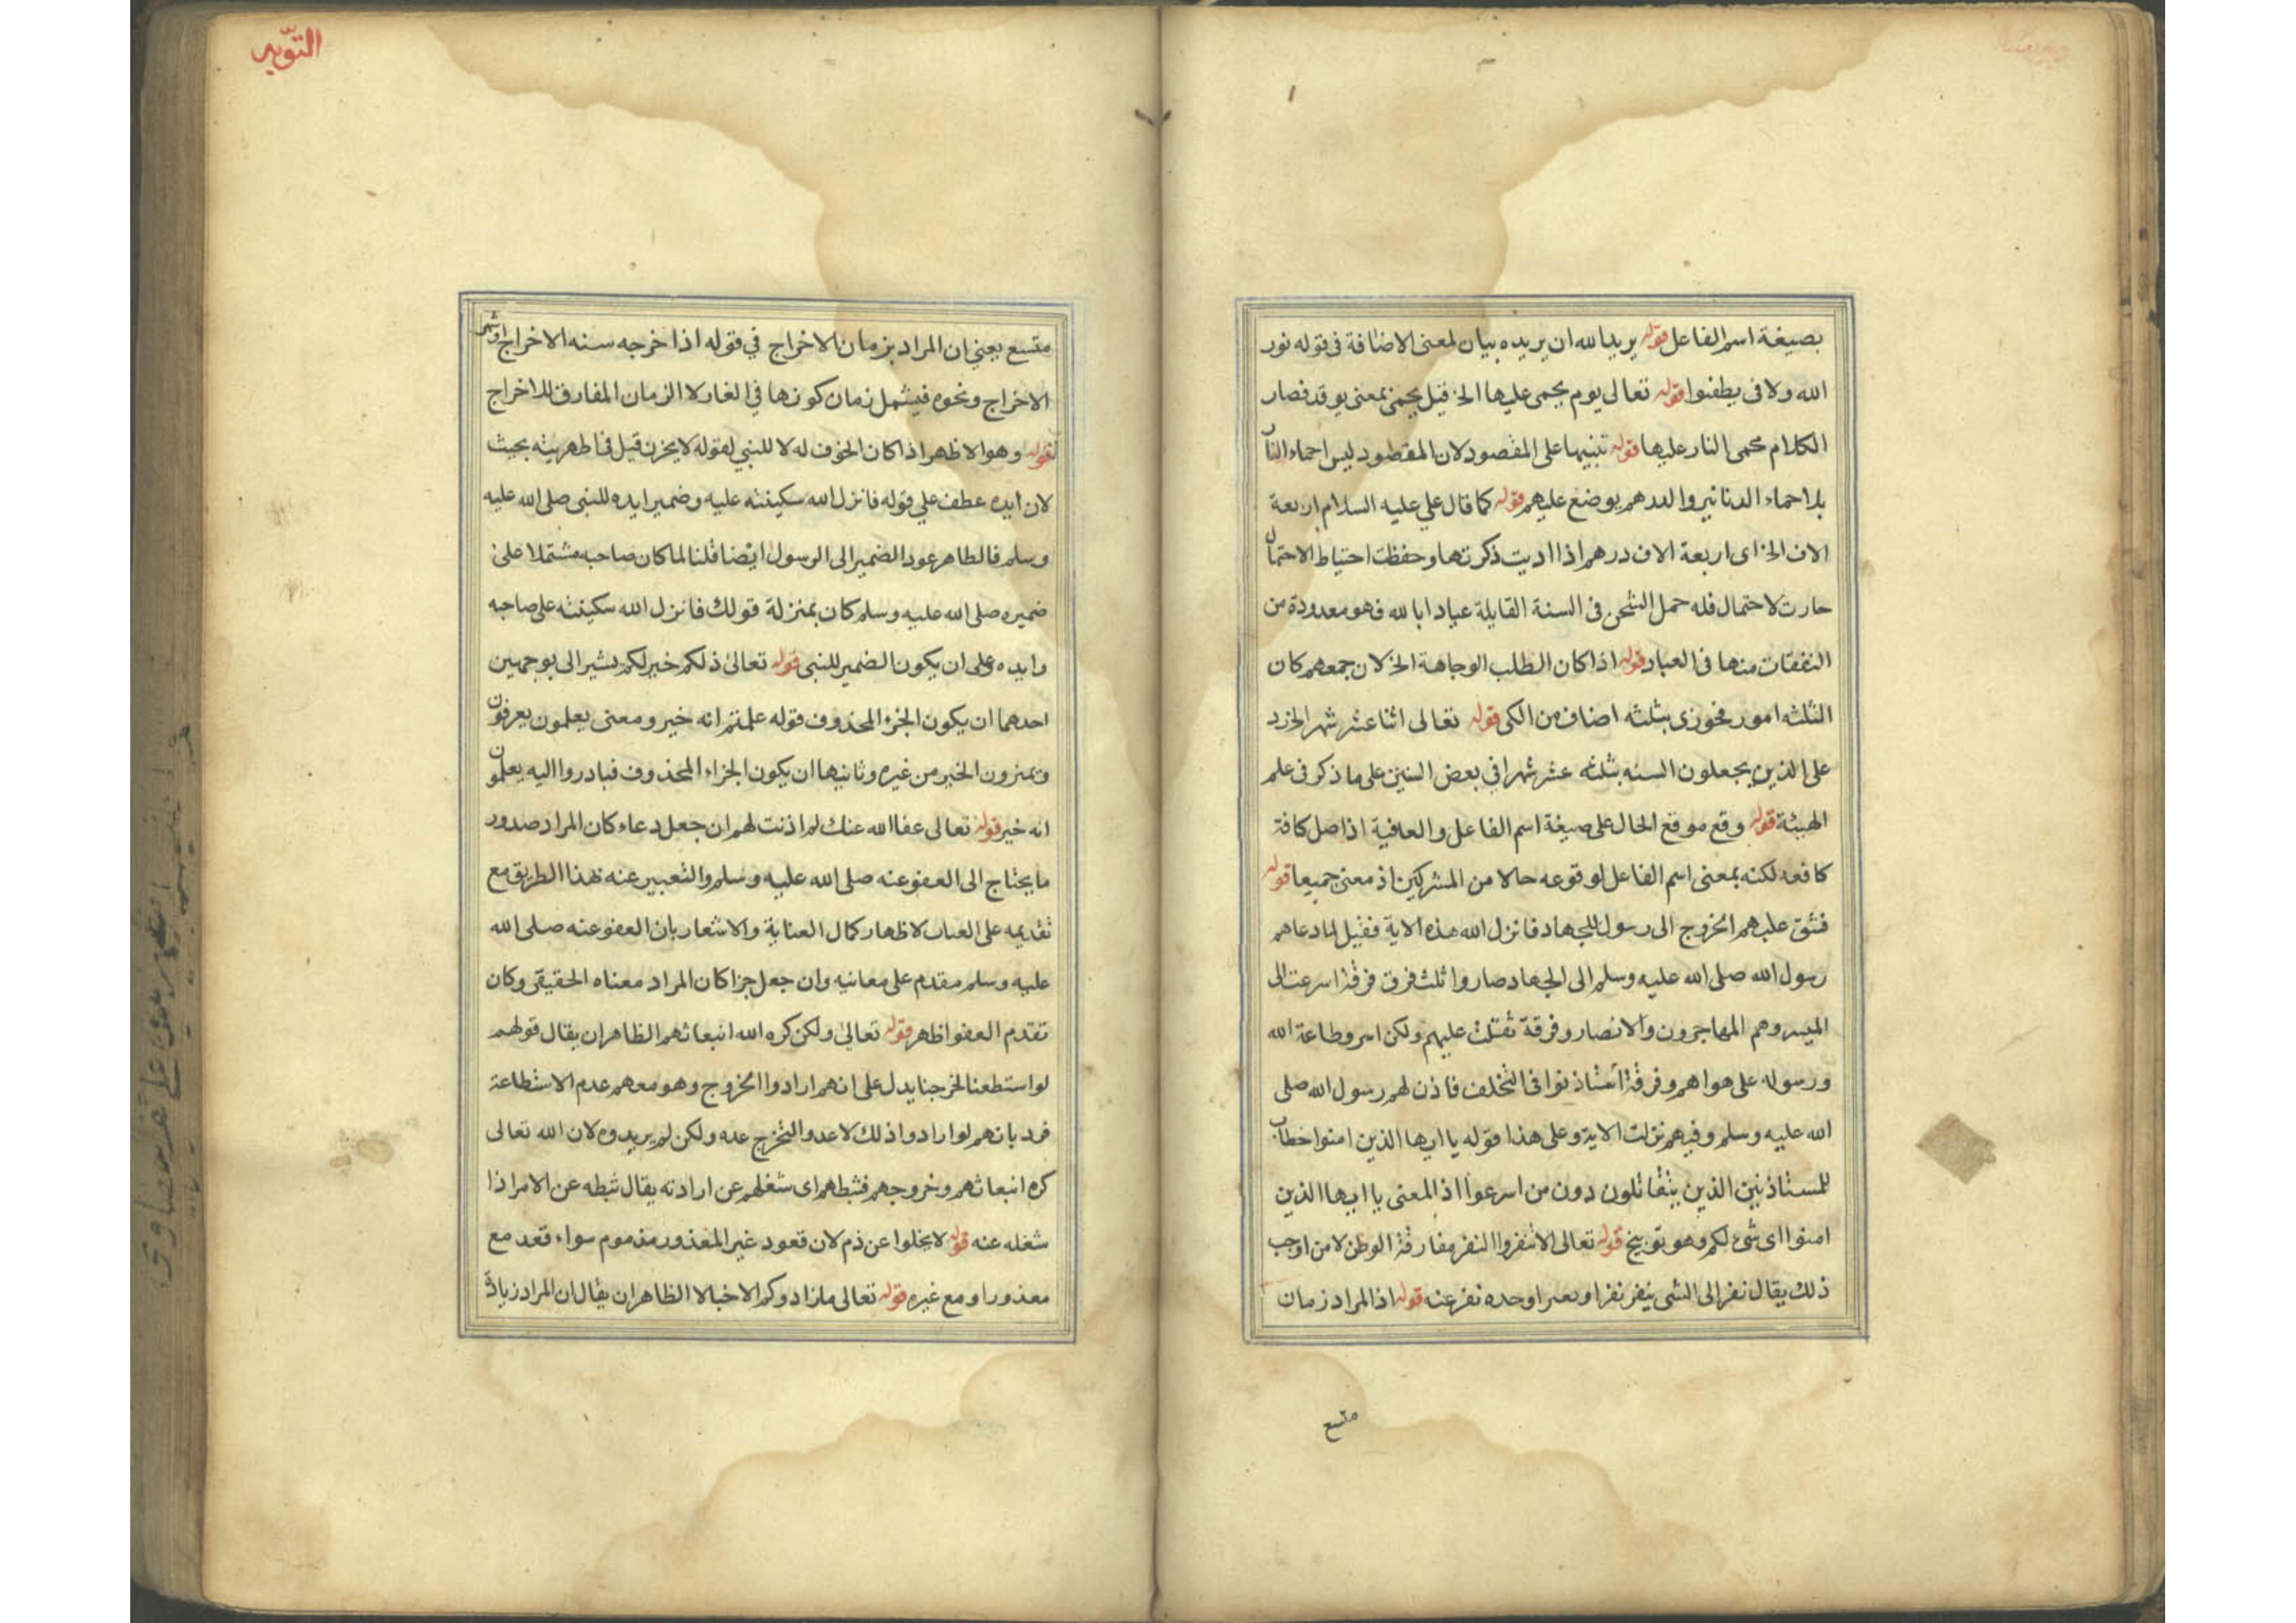 بصيغة اسم الفاعل قوله يريد الله ان يريده بيان لمعنى الاضافة في قوله نور
الله ولا في يطفئوا قوله تعالى يوم يحمى عليها الخ قيل يحمى بمعنى يوقد فصار
الكلام محمى النار عليها قوله تنبيها على المقصود لان المقصود ليس احماء النار
بل احماء الدنانير والدرهم يوضع عليهم قوله كما قال علي عليه السلام اربعة
الاف الخ اى اربعة الاف درهم اذا اديت ذكرتها وحفظت احتياط الاحتمال
حارت لاحتمال فله حمل الشحن في السنة القابلة عيادا بالله فهو معدودة من
النفقات منها في العبار قوله اذا كان الطلب الوجاهة الخ لان جمعهم كان
الثلثه امور فجوزى بثلثه اصناف من الكى قوله تعالى اثنا عشر شهرا الخ رد
على الذين يجعلون السنه بثلثه عشر شهرا في بعض السنين على ما ذكر في علم
الهيئة قوله وقع موقع الحال على صيغة اسم الفاعل والعافية اذ اصل كافة
كافعه لكنه بمعنى اسم الفاعل لوقوعه حالا من المشركين اذ معنى جميعا قوله
فشق عليهم الخروج الى رسول للجهاد فانزل الله هذه الاية فقيل لما دعاهم
رسول الله صلى الله عليه وسلم الى الجهاد صاروا ثلث فرق فرقة اسرعت الى
المسير وهم المهاجرون والانصار وفرقة ثقلت عليهم ولكن اسروطاعة الله
ورسوله على هواهم وفرقة استاذنوا في التخلف فاذن لهم رسول الله صلى
الله عليه وسلم وفيهم نزلت الاية وعلى هذا قوله يا ايها الذين امنوا خطاب
للمستاذنين الذين يتثاقلون دون من اسرعوا اذ المعنى يا ايها الذين
امنوا اى شئ لكم وهو توبيخ قوله تعالى الا تنفروا النفر مفارقة الوطن لامن اوجب
ذلك يقال نفر الى الشى ينفر نفرا ونعر اوحده نفر عنه قوله اذ المراد زمان
متسع
التوبه
متسع يعني ان المراد بزمان الاخراج في قوله اذا خرجه سنه الاخراج او شهر
الاخراج ونحوه فيشمل زمان كونها في الغار لا الزمان المفارق للاخراج
قوله وهو الاظهر اذا كان الخوف له لا للنبي لقوله لا يحزن قيل في اظهريته بحيث
لان ايده عطف على قوله فانزل الله سكينته عليه وضمير ايده للنبى صلى الله عليه
وسلم فالظاهر عود الضمير الى الرسول ايضا قلنا لما كان صاحبه مشتملا على
ضميره صلى الله عليه وسلم كان بمنزلة قولك فانزل الله سكينته على صاحبه
وايده على ان يكون الضمير للنبى قوله تعالى ذلكم خير لكم يشير الى بوجهين
احدهما ان يكون الجزء المحذوف قوله علمتم انه خير ومعنى يعلمون يعرفون
وتميزون الخير من غيره وثانيها ان يكون الجزاء المحذوف فبادروا اليه يعلمون
انه خير قوله تعالى عفا الله عنك لم اذنت لهم ان جعل دعاء كان المراد صدور
ما يحتاج الى العفو عنه صلى الله عليه وسلم والتعبير عنه هذا الطريق مع
تقديمه على العتاب لاظهار كمال العناية والاشعار بان العفو عنه صلى الله
عليه وسلم مقدم على معانيه وان جعل جزا كان المراد معناه الحقيقى وكان
تقدم العفو اظهر قوله تعالى ولكن كره الله انبعاثهم الظاهر ان يقال قولهم
لو استطعنا لخرجنا يدل على انهم ارادوا الخروج وهو معهم عدم الاستطاعة
فرد بانهم لو ارادوا ذلك لاعدوا التخرج عده ولكن لم يريدوه لان الله تعالى
كره انبعاثهم وخروجهم فثبطهم اى شغلهم عن ارادته يقال ثبطه عن الامر اذا
شغله عنه قوله لا يخلوا عن ذم لان قعود غير المعذور مذموم سواء قعد مع
معذور او مع غيره قوله تعالى ما زادوكم الا خبالا الظاهر ان يقال ان المراد زيادة